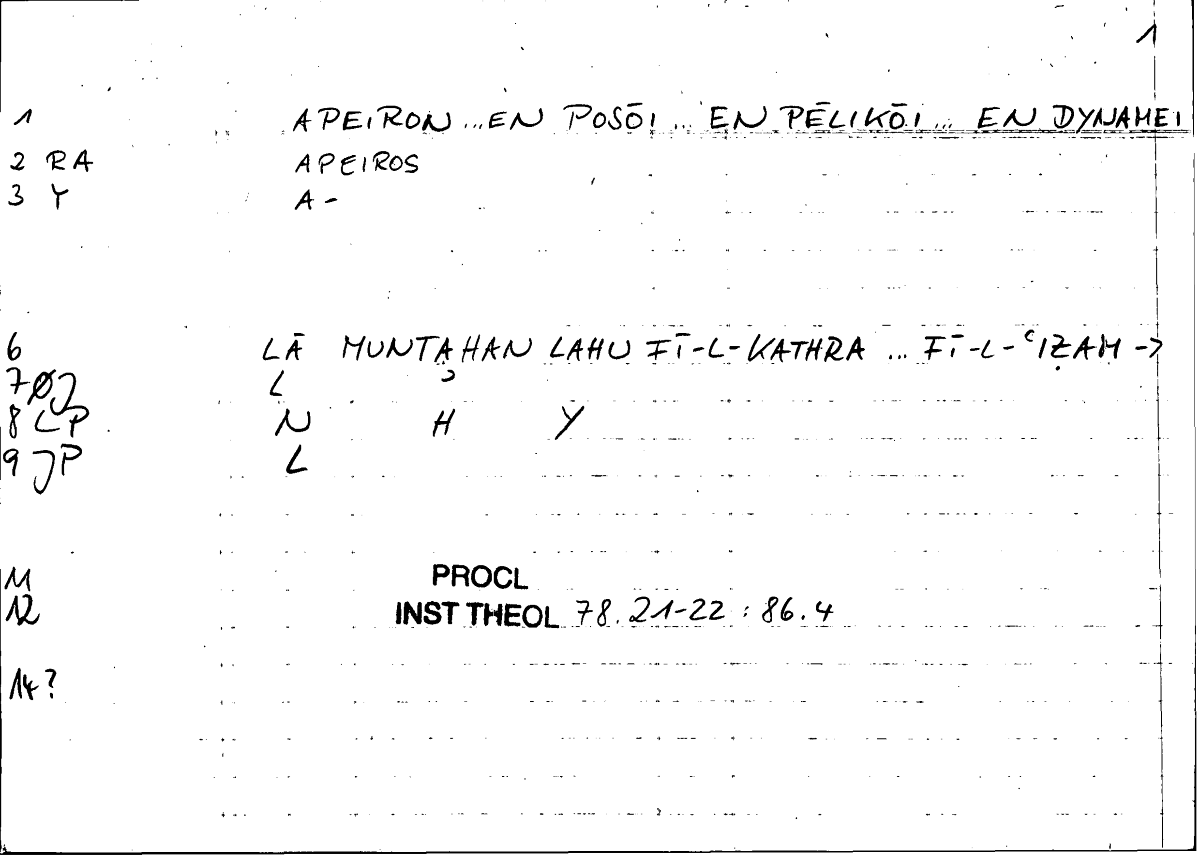 1
1 APEIRON ... EN POSŌI ... EN PĒLIKŌI ... EN DYNAMEI
2 RA APEIROS
3 Y A-
6 LĀ MUNTAHAN LAHU FĪ-L-KATHRA ... FĪ-L-ʿIẒAM →
7 ØJ L ʾ
8 LP N H Y
9 JP L
11 PROCL
12 INST THEOL 78.21-22 : 86.4
14?